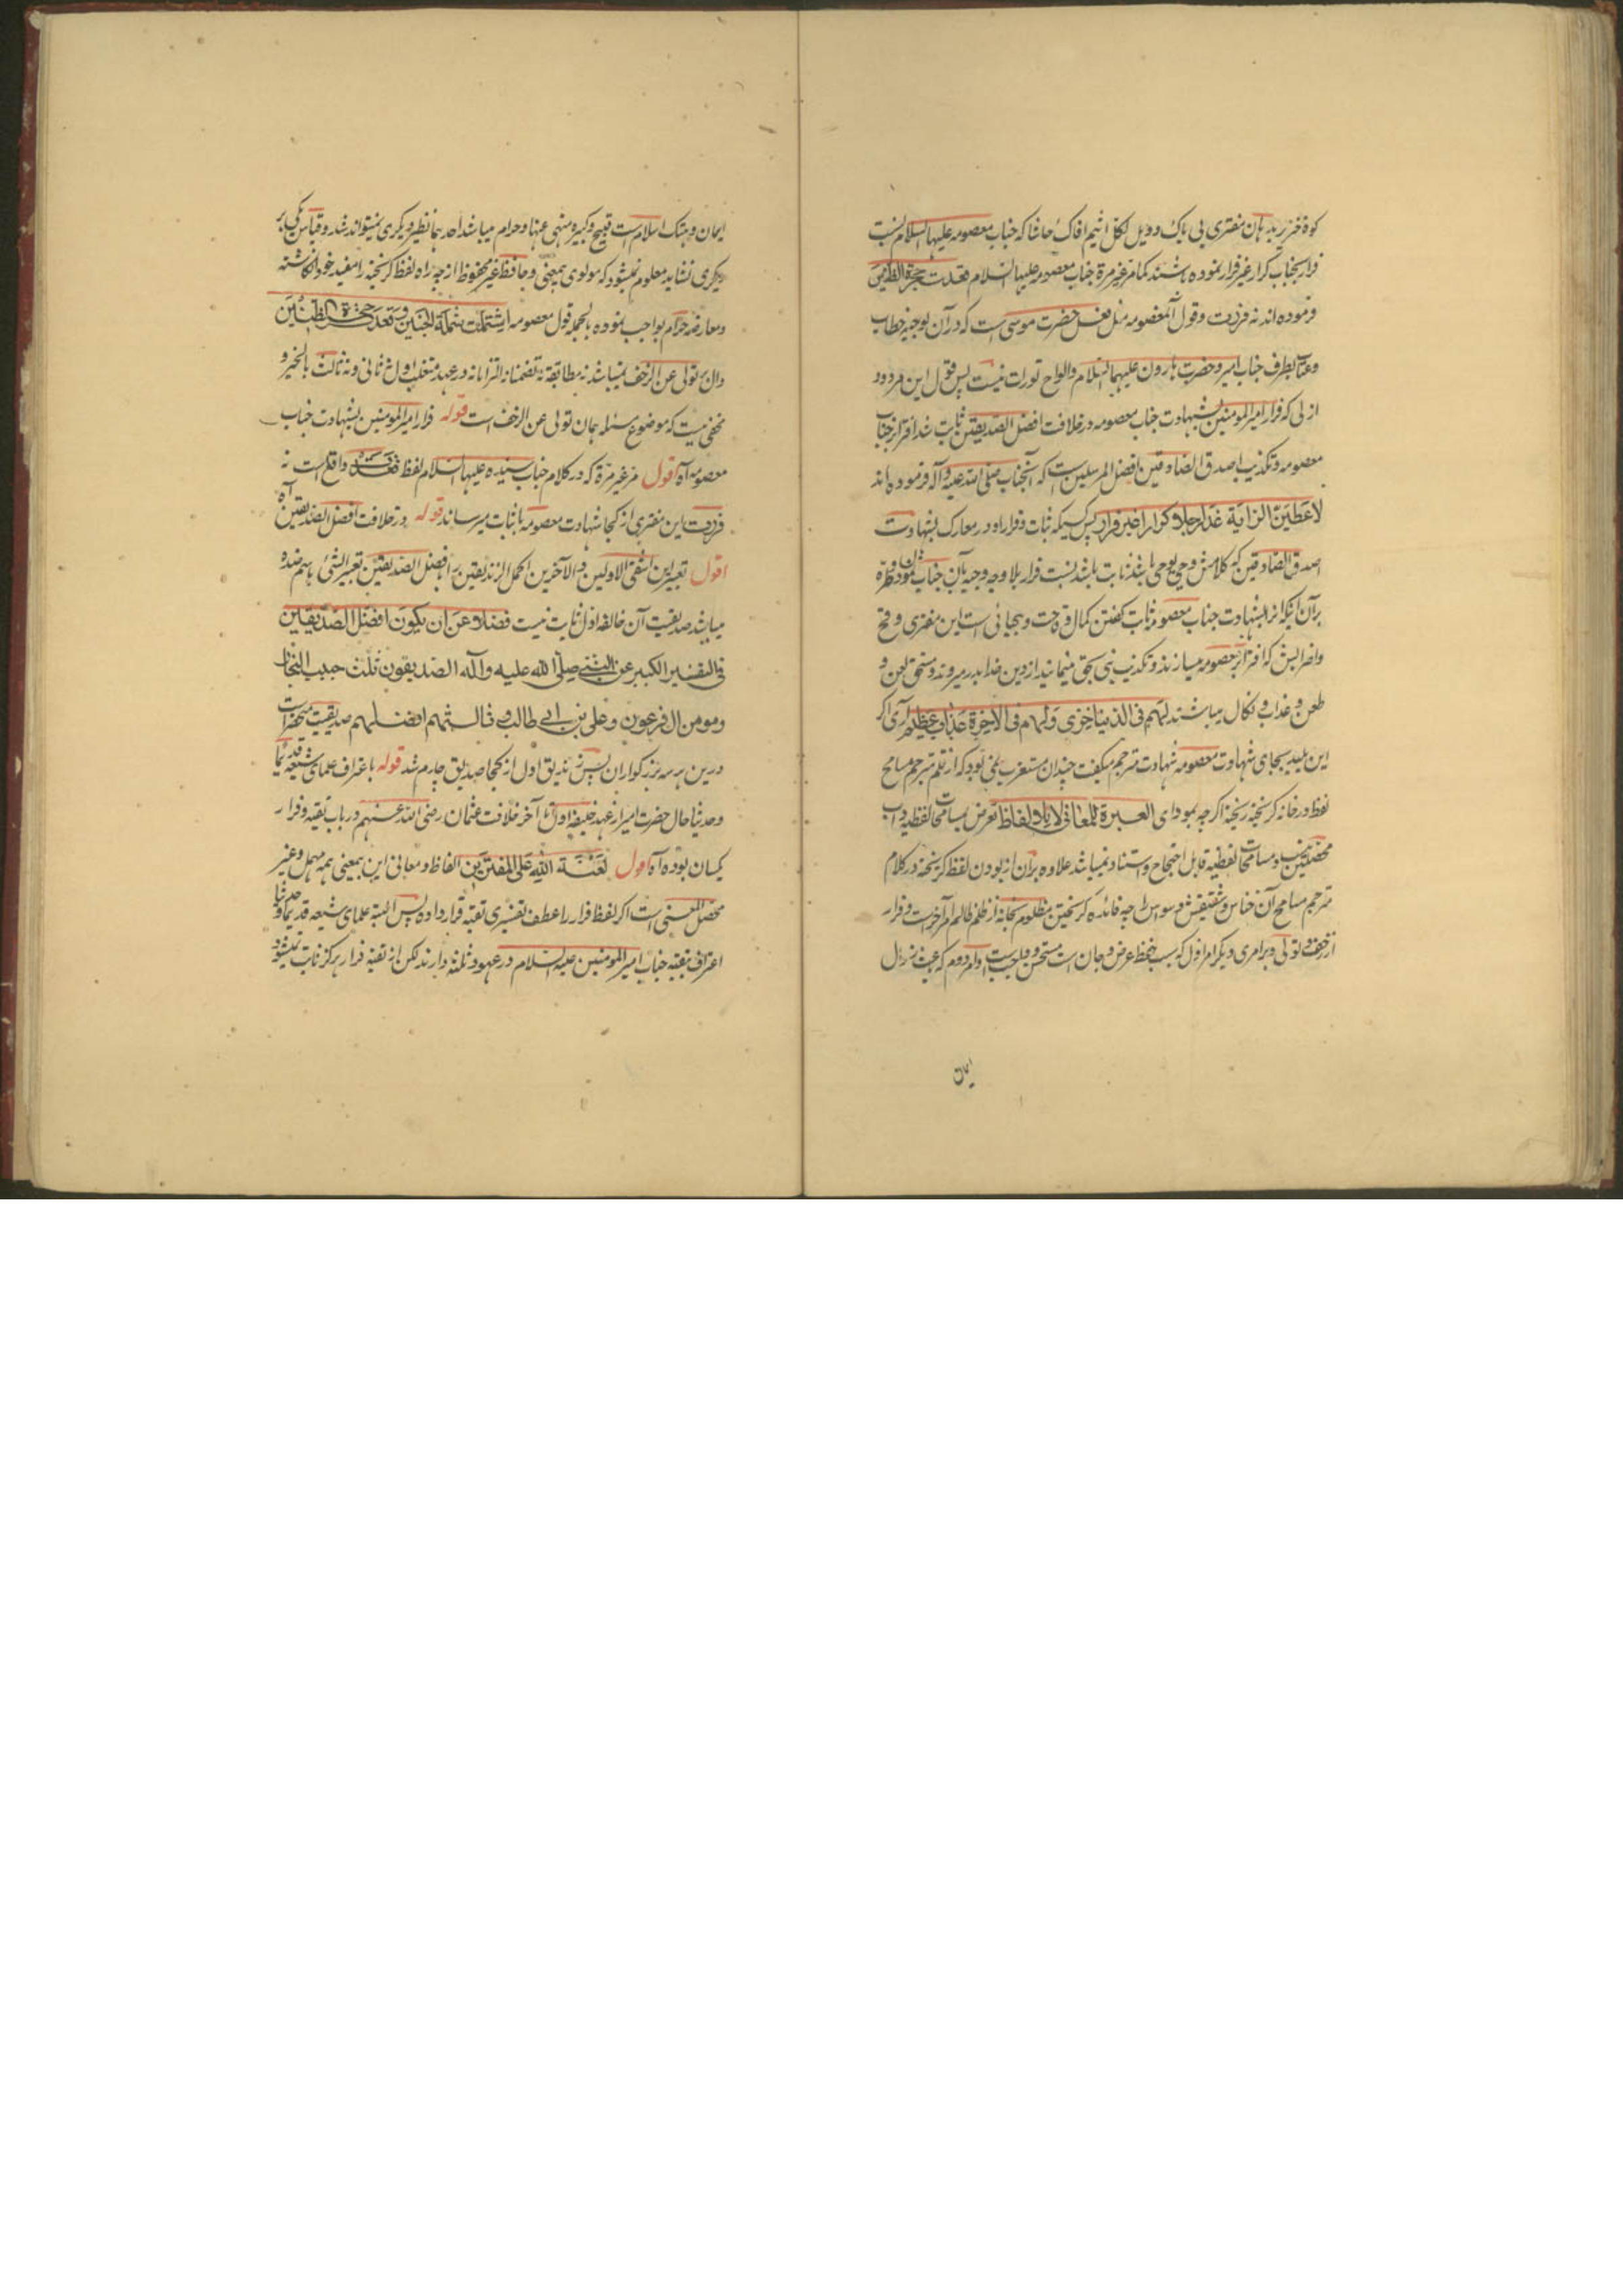 کوه خنزیر بدهان مفتری بی باک و ویل لکل اثیم افاک حاشا که جناب معصومه علیها السلام نسبت
فرار بجناب کرار غیر فرار نموده باشند کما مر غیر مرة جناب معصومه علیها السلام قعدت حجرة الظنین
فرموده اند نه فررت وقول آنمعصومه مثل فعل حضرت موسی است که در آن توجیه خطاب
وعتاب بطرف جناب امیر وحضرت هارون علیهما السلام والواح تورات نیست پس قول این مردود
ازلی که فرار امیر المومنین بشهادت جناب معصومه در خلافت افضل الصدیقین ثابت شد افترا بر جناب
معصومه وتکذیب اصدق الصادقین افضل المرسلین است که آنجناب صلی الله علیه وآله فرموده اند
لاعطین الرایة غدا رجلا کرارا غیر فرار پس کسیکه ثبات وقرار او در معارک بشهادت
اصدق الصادقین که کلامش وحی یوحی باشد ثابت باشد نسبت فرار بلا وجه وجیه بآن جناب نمودن وطره
برآن اینکه انرا بشهادت جناب معصومه ثابت گفتن کمال وقاحت وبیحیائی است این مفتری وقح
واضرابش که افترا بر معصومه میسازند وتکذیب نبی بحق مینمایند از دین خدا بدر میروند ومستحق لعن و
طعن وعذاب ونکال میباشند لهم فی الدنیا خزی ولهم فی الاخرة عذاب عظیم آری اگر
این پلید بجای شهادت معصومه شهادت مترجم میگفت چندان مستغرب نمی بود که از قلم مترجم مسامح
لفظ در خانه گریخته ریخته اگرچه بمودای العبرة للمعانی لا بالالفاظ تعرض مسامحات لفظیه داب
محصلین نیست ومسامحات لفظیه قابل احتجاج واستناد نمیباشد علاوه بران از بودن لفظ گریخته در کلام
مترجم مسامح آن خناس را چه فائده گریختن مظلوم بخانه از ظلم ظالم امر آخر است وفرار
از زحف وتولی دبر امری دیگر امر اول که بسبب حفظ عرض وجان است مستحسن وواجب است وامر دوم که
ایمان
ایمان وهتک اسلام است قبیح وکبیره ومنهی عنها وحرام میباشد احدهما نظیر دیگری نمیتواند شد وقیاس یکی بر
دیگری نشاید معلوم نمیشود که مولوی بیمعنی وحافظ غیر محفوظ از چه راه لفظ گریخته را مفید خود انگاشته
ومعارضه حرام بواجب نموده بالجمله قول معصومه اشتملت شملة الجنین وقعدت حجرة الظنین
دال بر تولی عن الزحف نمیباشد نه مطابقة نه تضمنا نه التزاما نه در عهد متغلب اول نه ثانی ونه ثالث بالخیر و
مخفی نیست که موضوع مسئله همان تولی عن الزحف است قوله فرار امیر المومنین بشهادت جناب
معصومه آه اقول مر غیر مرة که در کلام جناب سیده علیها السلام لفظ قعدت واقع است نه
فررت این مفتری از کجا شهادت معصومه باثبات میرساند قوله در خلافت افضل الصدیقین آه
اقول تعبیر این اشقی الاولین والآخرین اکمل الزندیقین را بافضل الصدیقین تعبیر الشئ باسم ضده
میباشد صدیقیت آن خالفه اول ثابت نیست فضلا عن ان یکون افضل الصدیقین
فی التفسیر الکبیر عن النبی صلی الله علیه وآله الصدیقون ثلث حبیب النجار
ومومن ال فرعون وعلی بن ابی طالب وثالثهم افضلهم صدیقیت منحصر است
درین هر سه بزرگواران پس زندیق اول از کجا صدیق چارم شد قوله باعتراف علمای شیعه قدیما
وحدیثا حال حضرت امیر از عهد خلیفه اول تا آخر خلافت عثمان رضی الله عنهم در باب تقیه وفرار
یکسان بوده آه اقول لعنة الله علی المفترین الفاظ ومعانی این بیمعنی همه مهمل وغیر
محصل المعنی است اگر لفظ فرار را عطف تفسیری تقیه قرار داده پس البته علمای شیعه قدیما وحدیثا
اعتراف بتقیه جناب امیر المومنین علیه السلام در عهود ثلثه دارند لکن از تقیه فرار هرگز ثابت نمیشود